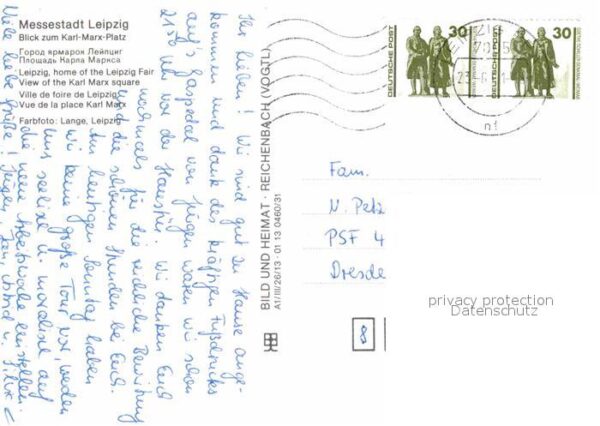 Messestadt Leipzig
Blick zum Karl-Marx-Platz
Город ярмарок Лейпциг
Площадь Карла Маркса
Leipzig, home of the Leipzig Fair
View of the Karl Marx square
Ville de foire de Leipzig
Vue de la place Karl Marx
Farbfoto: Lange, Leipzig
Ihr Lieben! Wir sind gut zu Hause ange-
kommen und dank des kräftigen Fußdruckes
auf's Gaspedal von Jürgen waren wir schon
21.50 Uhr vor der Haustür. Wir danken Euch
nochmals für die reichliche Bewirtung
und die schönen Stunden bei Euch.
Am heutigen Sonntag haben
wir keine große Tour vor, werden
uns seelisch u. moralisch auf
die neue Arbeitswoche einstellen.
Viele liebe Grüße! Jürgen,
BILD UND HEIMAT · REICHENBACH (VOGTL)
A1/III/26/13 · 01 13 0460/31
DEUTSCHE POST
30
DEUTSCHE POST
30
Fam.
N. Petz
PSF 4
Dresde
8
privacy protection
Datenschutz